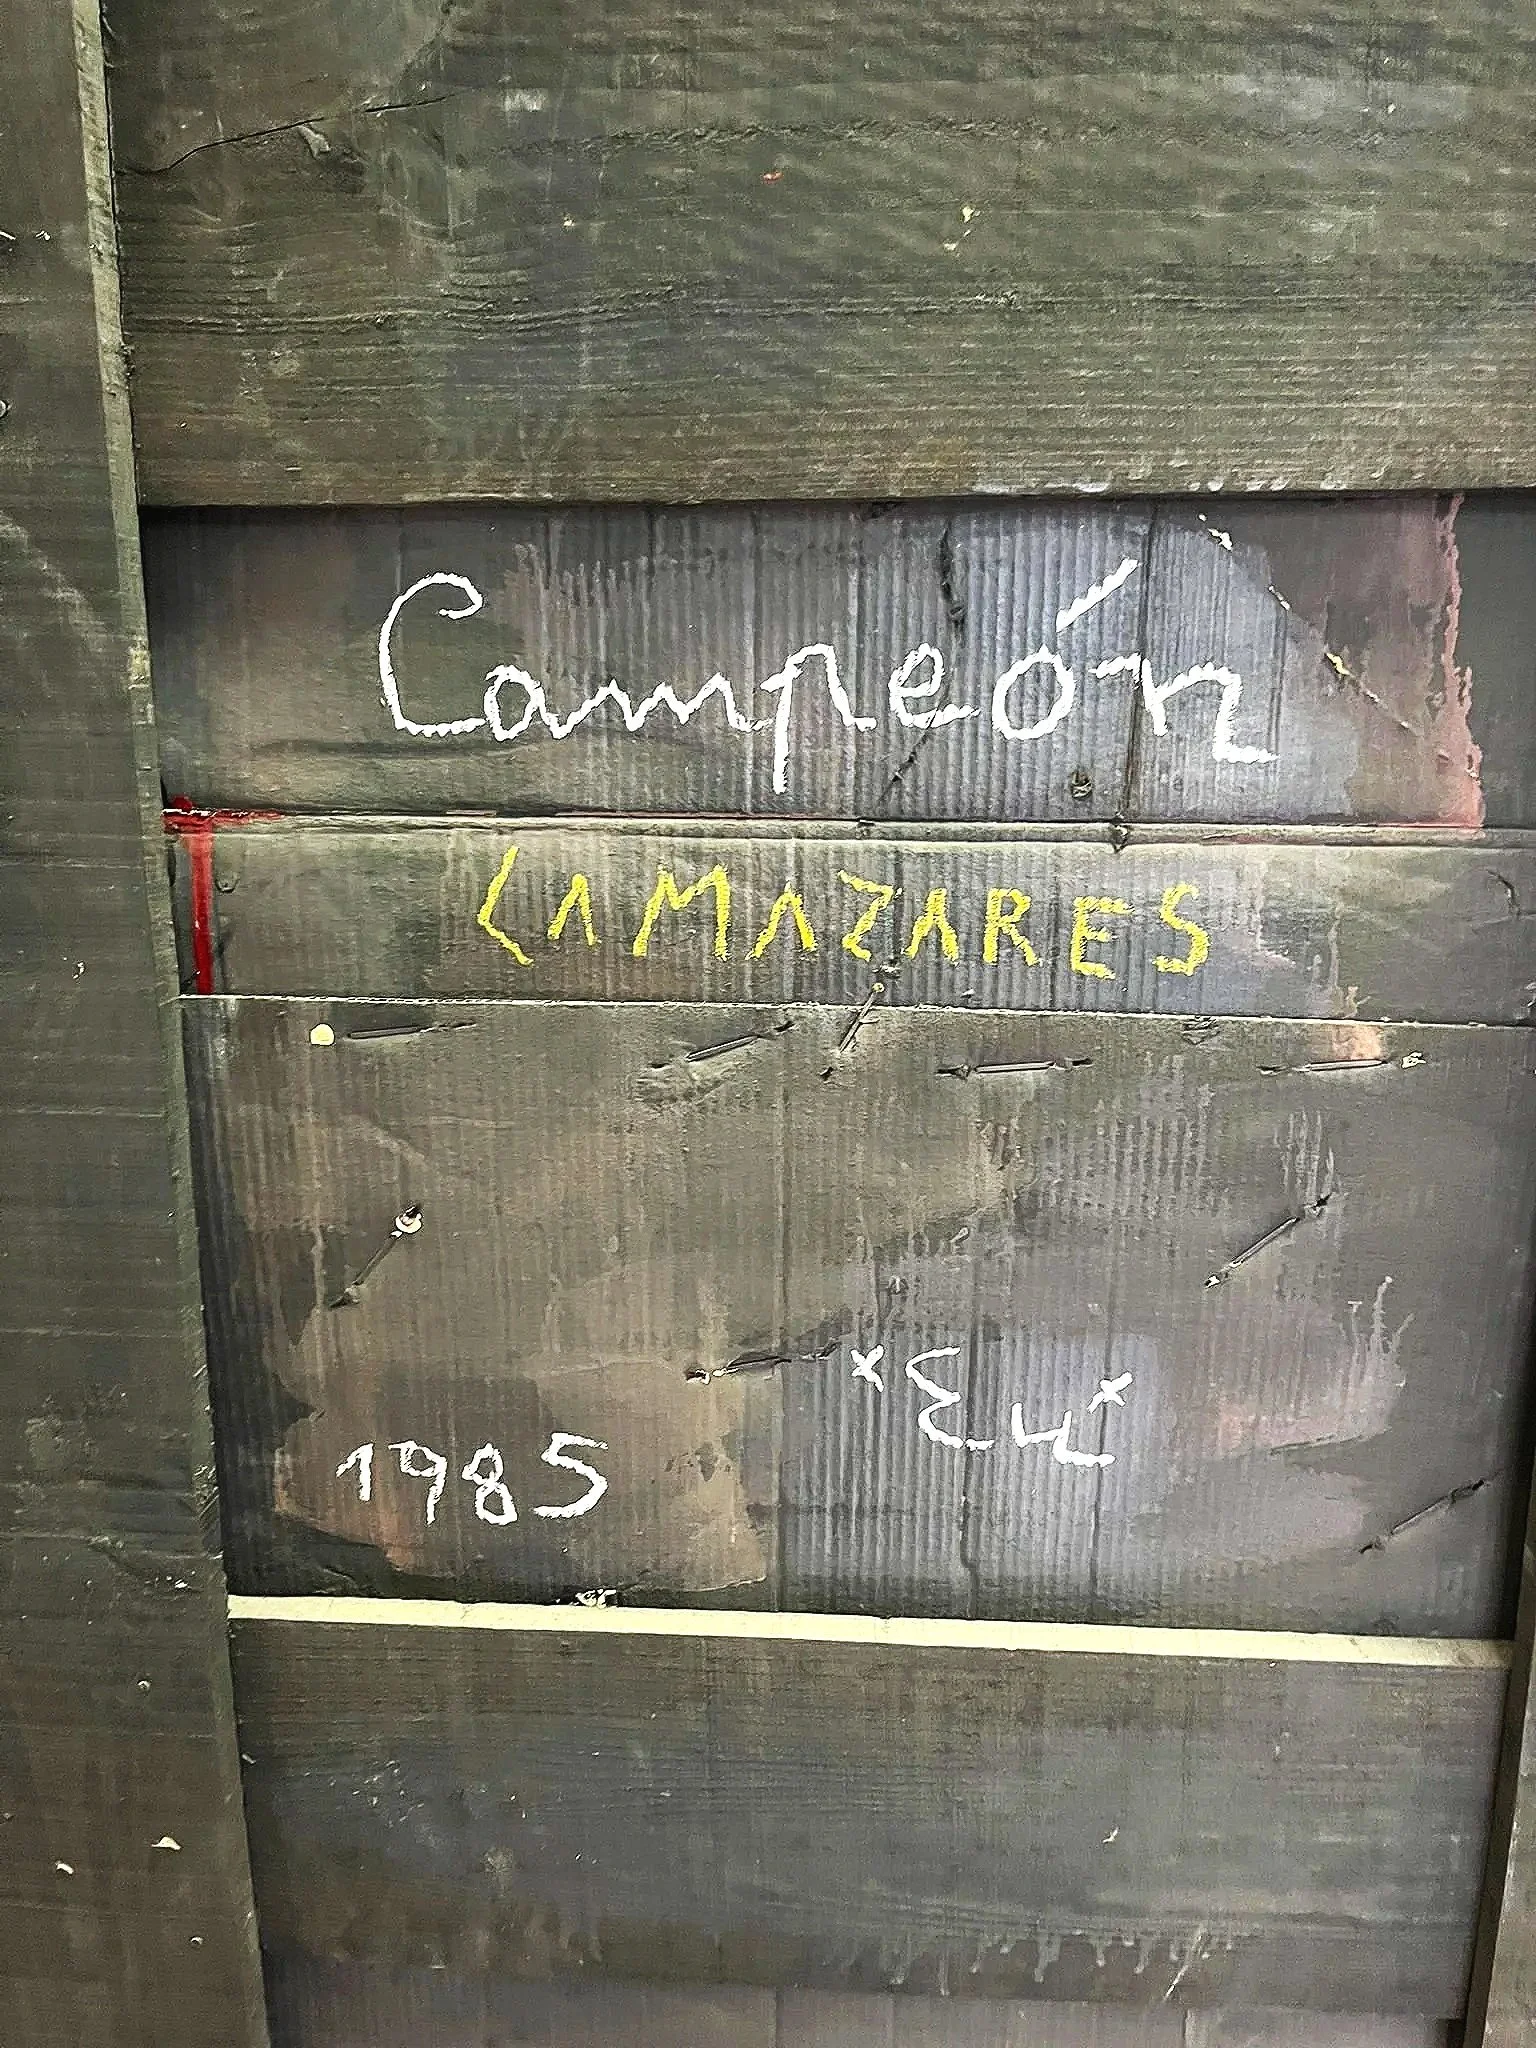 Campeón
LAMAZARES
1985